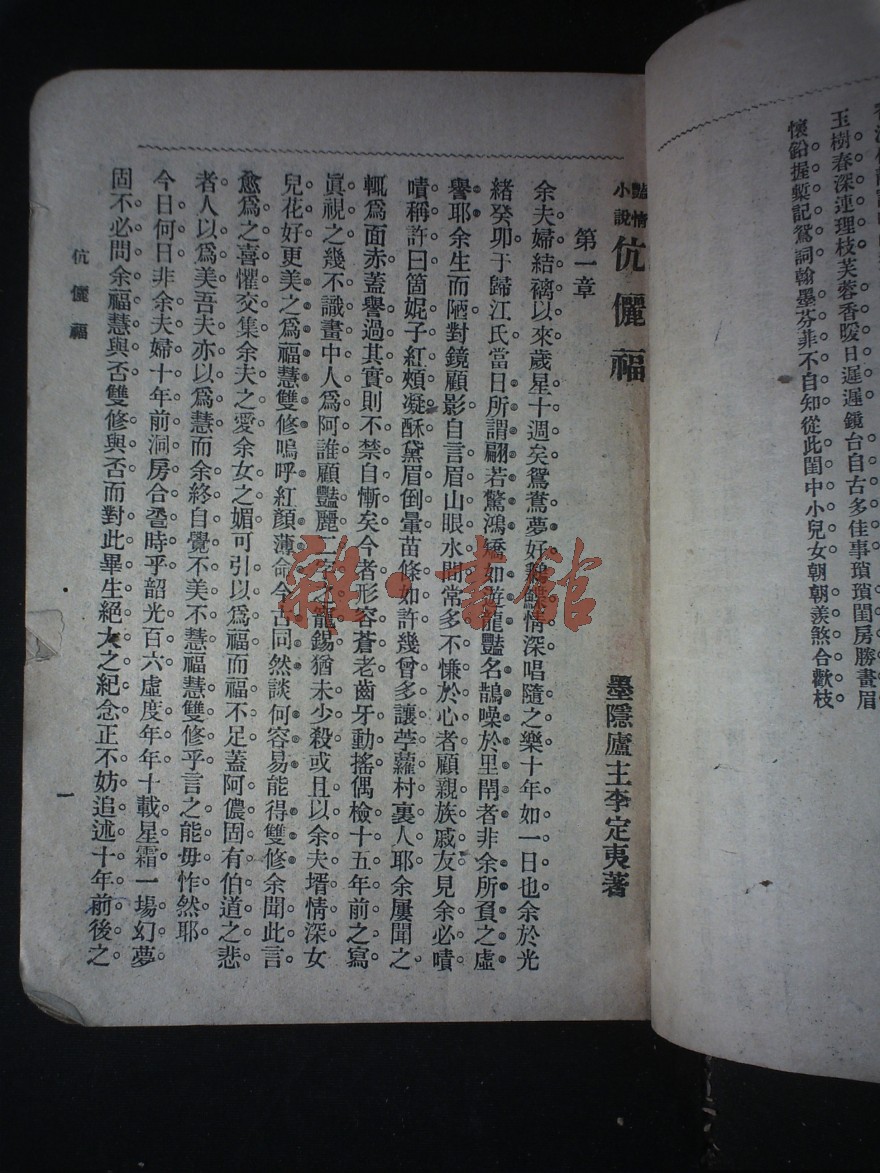 玉樹春深連理枝芙蓉香暖日遲遲鏡台自古多佳事瑣瑣閨房勝畫眉
懷鉛握槧記鴛詞翰墨芬菲不自知從此閨中小兒女朝朝羨煞合歡枝
豔情小說 伉儷福
墨隱廬主李定夷著
第一章
余夫婦結褵以來歲星十週矣鴛鴦夢好鶼鰈情深唱隨之樂十年如一日也余於光
緒癸卯于歸江氏當日所謂翩若驚鴻矯如游龍豔名鵲噪於里閈者非余所負之虛
譽耶余生而陋對鏡顧影自言眉山眼水間常多不慊於心者顧親族戚友見余必嘖
嘖稱許曰箇妮子紅頰凝酥黛眉倒暈苗條如許幾曾多讓苧蘿村裏人耶余屢聞之
輒爲面赤蓋譽過其實則不禁自慚矣今者形容蒼老齒牙動搖偶檢十五年前之寫
眞視之幾不識畫中人爲阿誰顧豔麗二字之寵錫猶未少殺或且以余夫壻情深女
兒花好更美之爲福慧雙修嗚呼紅顏薄命今古同然談何容易能得雙修余聞此言
愈爲之喜懼交集余夫之愛余女之媚可引以爲福而福不足蓋阿儂固有伯道之悲
者人以爲美吾夫亦以爲慧而余終自覺不美不慧福慧雙修乎言之能毋怍然耶
今日何日非余夫婦十年前洞房合巹時乎韶光百六虛度年年十載星霜一場幻夢
固不必問余福慧與否雙修與否而對此畢生絕大之紀念正不妨追述十年前後之
伉儷福
一
雜·書館